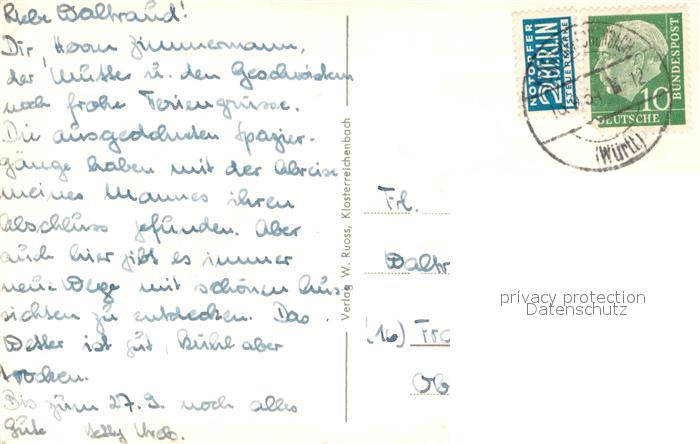 Liebe Waltraud!
Dir, Herrn Zimmermann,
der Mutter u. den Geschwistern
noch frohe Feriengrüsse.
Die ausgedehnten Spazier-
gänge haben mit der Abreise
meines Mannes ihren
Abschluss gefunden. Aber
auch hier gibt es immer
neue Wege mit schönen Aus-
sichten zu entdecken. Das
Wetter ist gut, kühl aber
trocken.
Bis zum 27.9. noch alles
Gute
Verlag W. Ruoss, Klosterreichenbach
NOTOPFER
2 BERLIN
STEUERMARKE
10
DEUTSCHE
BUNDESPOST
(Württ)
Frl.
Waltr
(16) Fra
Ob
privacy protection
Datenschutz